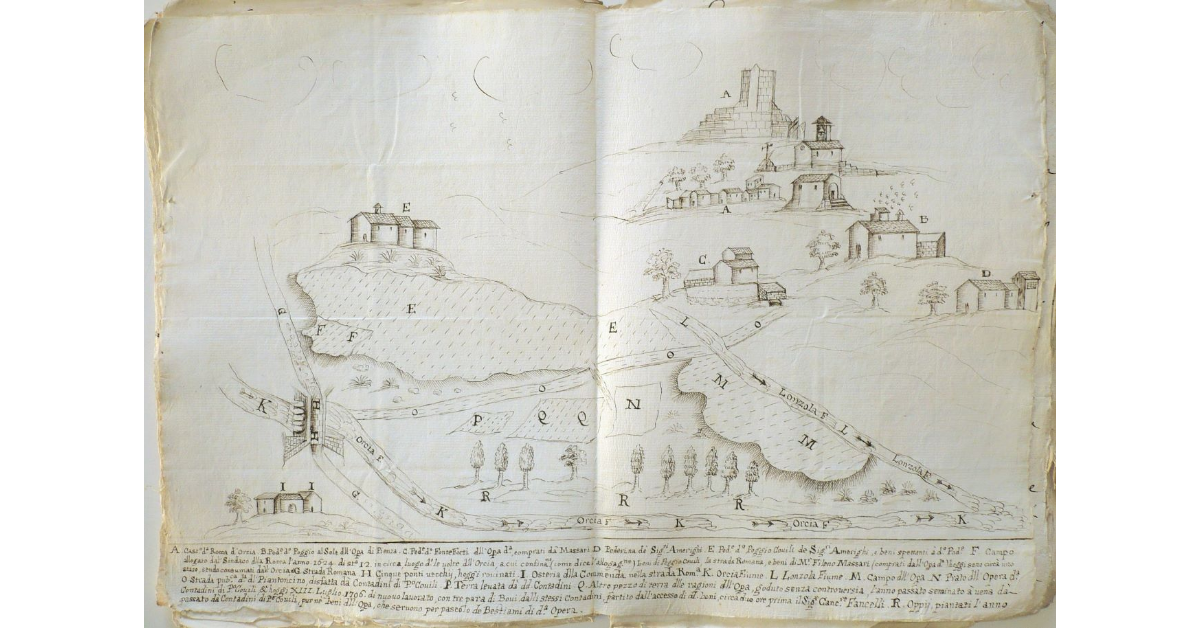 A
E
A
B
C
D
E
F
F
G
L
O
E
O
O
O
M
M
N
P
Q
Q
K
H
H
Orcia F.
G
K
I I
R
R
R
Lonzola F. L
Lonzola F.
Orcia F. K Orcia F. K
A Cast.º d.ª Rocca d'Orcia B. Pod.º d.º Poggio al Sole dll'Opa di C. Pod.º d.º dll'Opa d.ª comprati da Massari D. Poderina de Sig.ri Amerighi E Pod.º d.º Poggio Covili de Sig.ri Amerighi, e beni spettanti à d.º Pod.º F Campo
allogato dal Sindaco dlla Rocca l'anno 1694 di st.ª 12 in circa luogo d.º le volte dll'Orcia, a cui confina (come dice l'allogag.ne) beni di Poggio Covili, la strada Romana, e beni di M. Massari (comprati dall'Opa d.ª
consumati dall'Orcia G. Strada Romana H Cinque ponti vecchi, hoggi rovinati I. Osteria dlla Commenda, nella strada Rom.ª K. Orcia Fiume L Lonzola Fiume M. Campo dll'Opa N Prato dll Opera d.ª
O Strada pub.ca d.ª di Piantoncino disfatta da Contadini di P.º Covili P Terra levata da d.i Contadini Q Altro pezzo di terra alle ragioni dll'Opa, goduto senza controversia l'anno passato seminato à vena da
Contadini di P.º Covili, & hoggi XIII Luglio 1706 di nuovo lavorato con tre para di Bovi dalli stessi Contadini, partito dall'accesso di d.i beni circa due ore prima il Sig.r Canc.re Fancelli R. Oppij piantati l'anno
passato da Contadini di P.º Covili, pur ne beni dll Opa, che servono per pascolo de Bestiami di d.ª Opera.